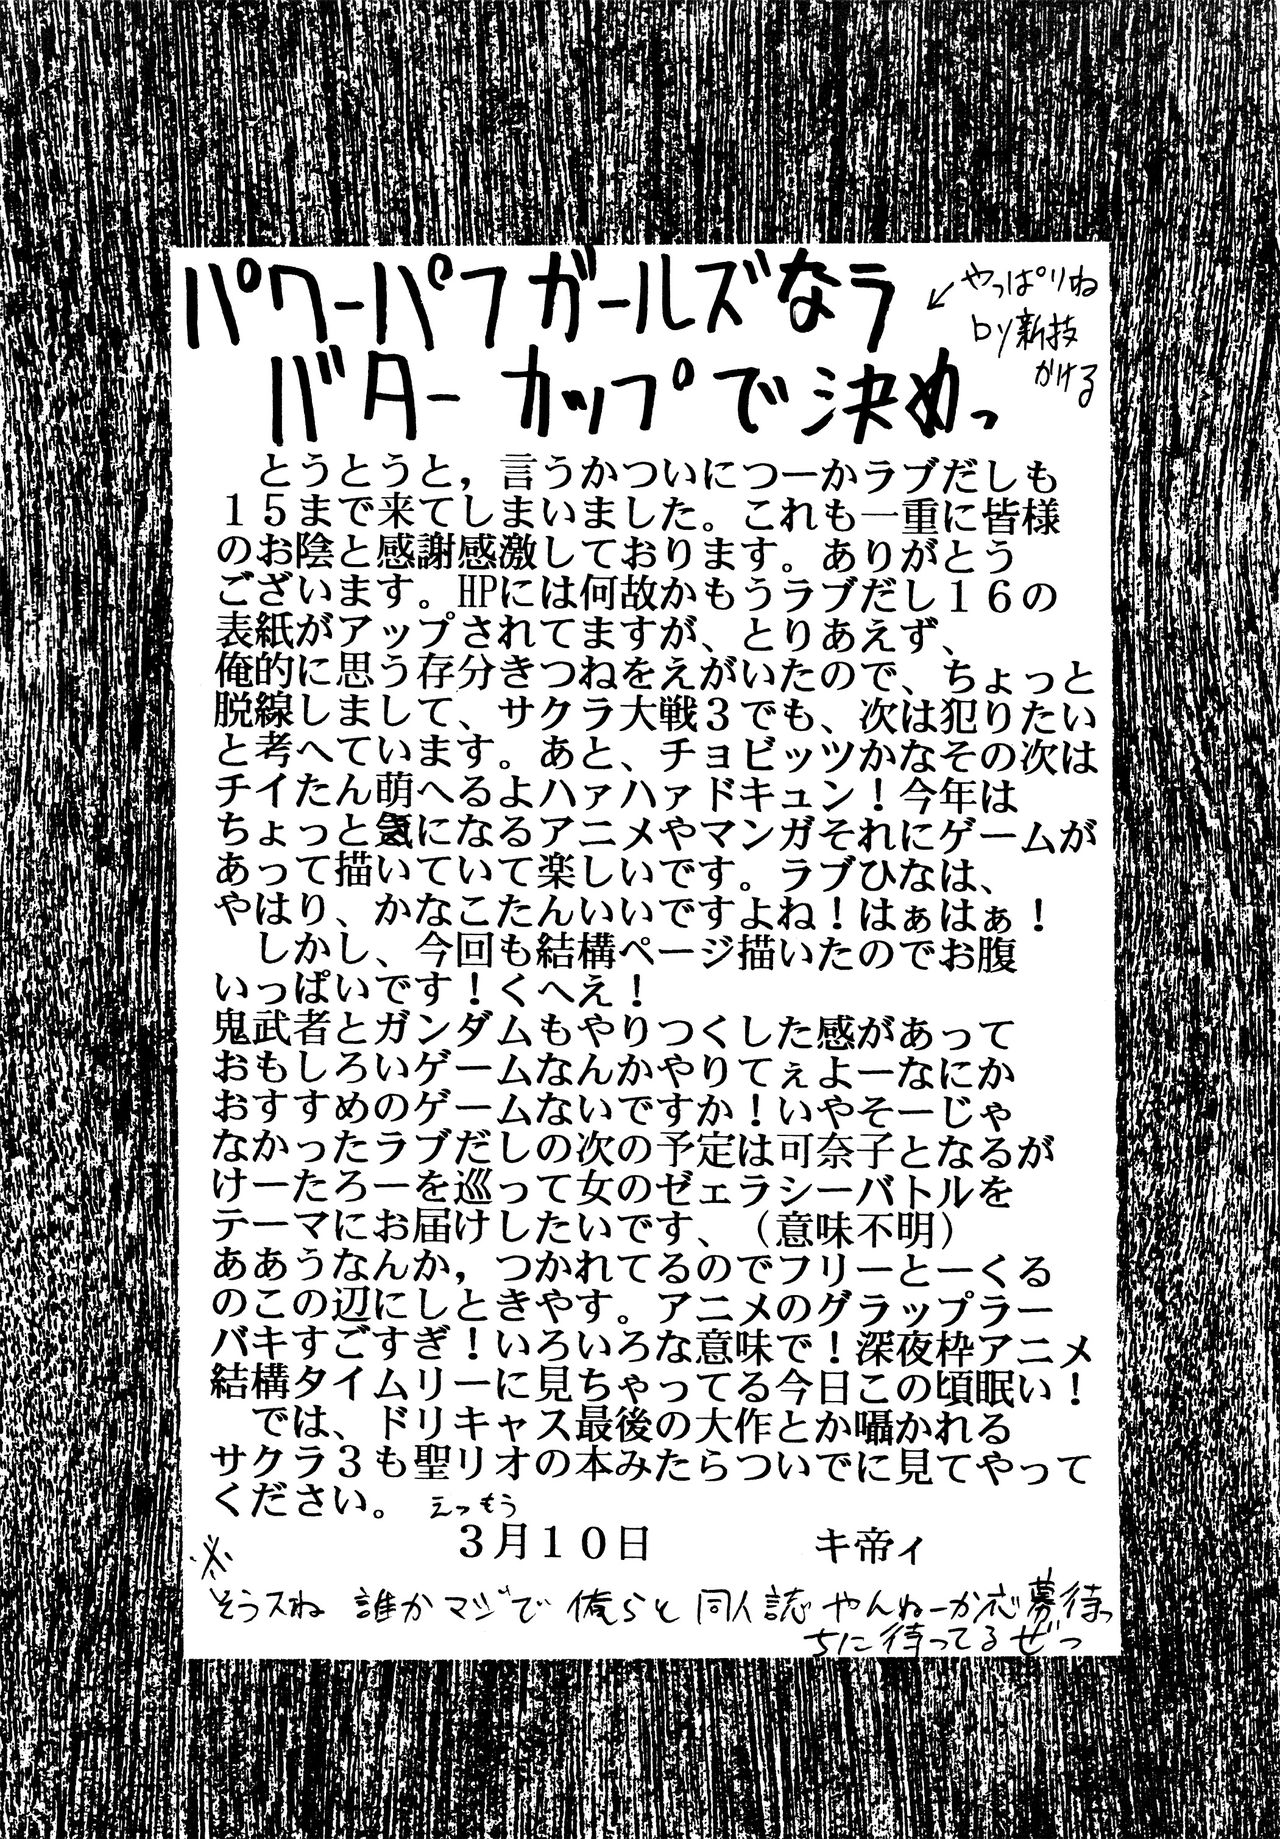 パワーパフガールズなラ
バターカップで決めっ
← やっぱりね
by新技
かける
とうとうと，言うかついにつーかラブだしも
１５まで来てしまいました。これも一重に皆様
のお陰と感謝感激しております。ありがとう
ございます。HPには何故かもうラブだし１６の
表紙がアップされてますが、とりあえず、
俺的に思う存分きつねをえがいたので、ちょっと
脱線しまして、サクラ大戦３でも、次は犯りたい
と考へています。あと、チョビッツかなその次は
チイたん萌へるよハァハァドキュン！今年は
ちょっと気になるアニメやマンガそれにゲームが
あって描いていて楽しいです。ラブひなは、
やはり、かなこたんいいですよね！はぁはぁ！
しかし、今回も結構ページ描いたのでお腹
いっぱいです！くへえ！
鬼武者とガンダムもやりつくした感があって
おもしろいゲームなんかやりてぇよーなにか
おすすめのゲームないですか！いやそーじゃ
なかったラブだしの次の予定は可奈子となるが
けーたろーを巡って女のゼェラシーバトルを
テーマにお届けしたいです、（意味不明）
ああうなんか，つかれてるのでフリーとーくる
のこの辺にしときやす。アニメのグラップラー
バキすごすぎ！いろいろな意味で！深夜枠アニメ
結構タイムリーに見ちゃってる今日この頃眠い！
では、ドリキャス最後の大作とか囁かれる
サクラ３も聖リオの本みたらついでに見てやって
ください。 えっもう
３月１０日　　　　キ帝ィ
※
そうスね 誰かマジで 俺らと 同人誌 やんねーか応募待っ
ちに待ってるぜっ